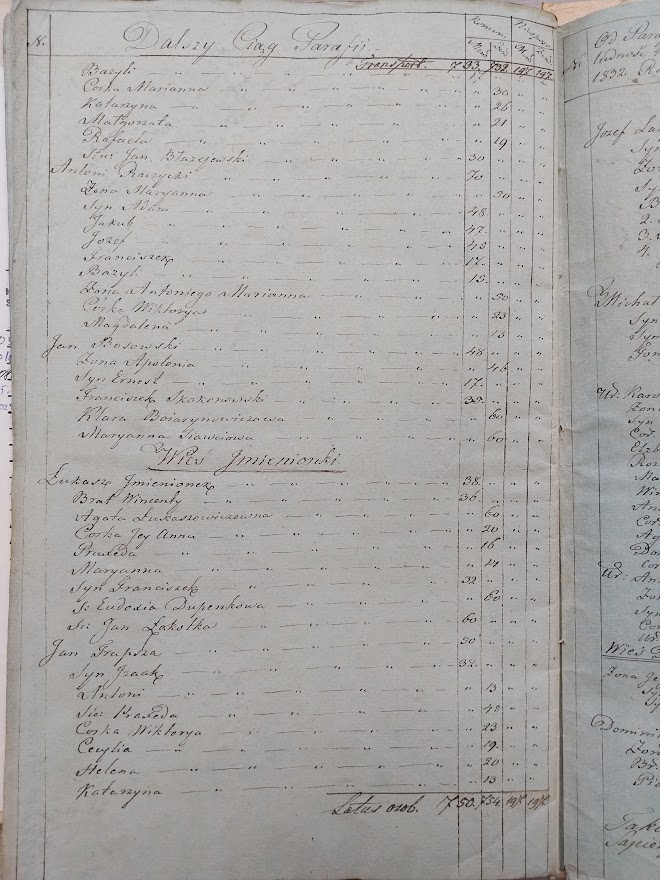 N. Dalszy Ciąg Parafij
Transport. 733. 732. 197. 197.
Bazyli 17.
Corka Marianna 30
Katarzyna 26
Małgorzata 21
Rafaela 19
Jan Błażejewski 30
Antoni Raczycki 70
Żona Maryanna 50
Syn Adam 48
Jakub 47.
Jozef 43
Franciszek 17.
Bazyli 15.
Żona Antoniego Marianna 50
Córka Wiktorya 23
Magdalena 13
Jan Bosowski 48
Żona Apolonia 46
Syn Ernest 17.
Franciszek Skokonowski 38.
Klara Boiarynowiczowa 60
Maryanna 60
Wieś Jmienionki
Łukasz Jmienionek 38.
Brat Wincenty 36.
Agata Łukaszewiczowna 60
Corka Jey Anna 20
Praxeda 16
Maryanna 14
Syn Franciszek 32
Eudoxia Dupenkowa 60
Jan Łakotka 60
Jan Trapsza 50
Syn Jzaak 32.
Antoni 13
Praxeda 48
Corka Wiktorya 23
Cecylia 19.
Helena 20
Katarzyna 13
Latus osob. 750. 754. 197. 197.
Od Para
1832. R
Jozef
Syn
2.
3.
4.
Michał
Syn
Ud. Karo
Żon
Syn
Elzb
Ma
An
Cor
Ag
Ud: An
Żon
Syn
Cor
Wieś
Żona Je
Sy
Dominik
Żon
Br.